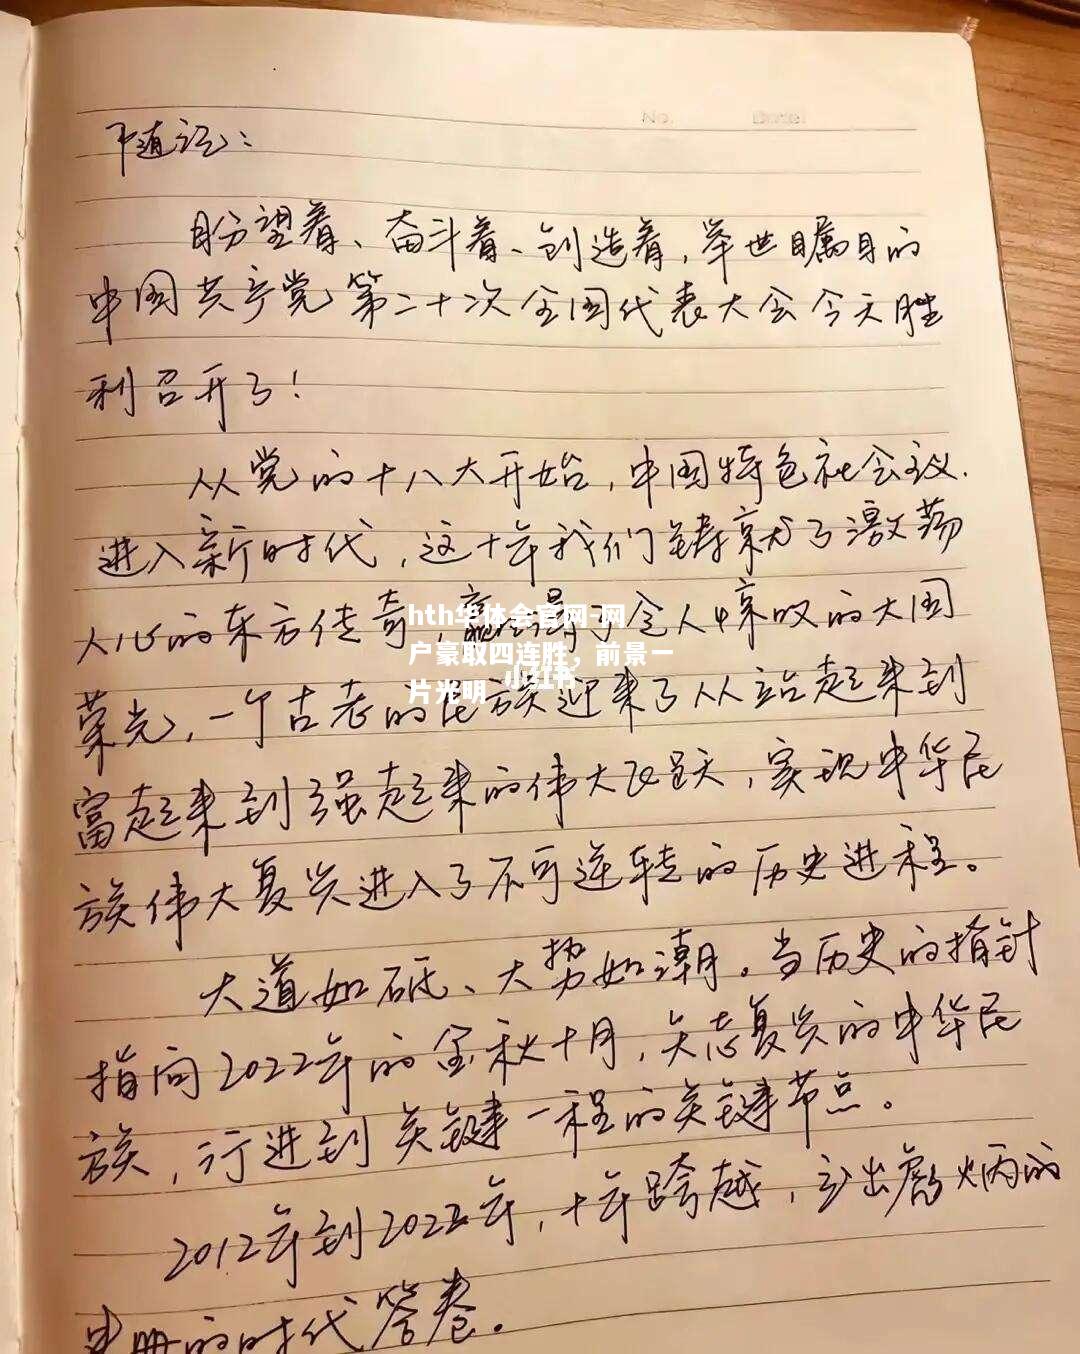 No. Date:
随记：
盼望着、奋斗着、创造着，举世瞩目的
中国共产党第二十次全国代表大会今天胜
利召开了！
从党的十八大开始，中国特色社会主义
进入新时代，这十年我们铸就了激荡
人心的东方传奇，赢得了令人惊叹的大国
hth华体会官网-网
户豪取四连胜，前景一
片光明
小红书
荣光，一个古老的民族迎来了从站起来到
富起来到强起来的伟大飞跃，实现中华民
族伟大复兴进入了不可逆转的历史进程。
大道如砥、大势如潮。当历史的指针
指向2022年的金秋十月，矢志复兴的中华民
族，行进到关键一程的关键节点。
2012年到2022年，十年跨越，写出彪炳的
史册的时代答卷。